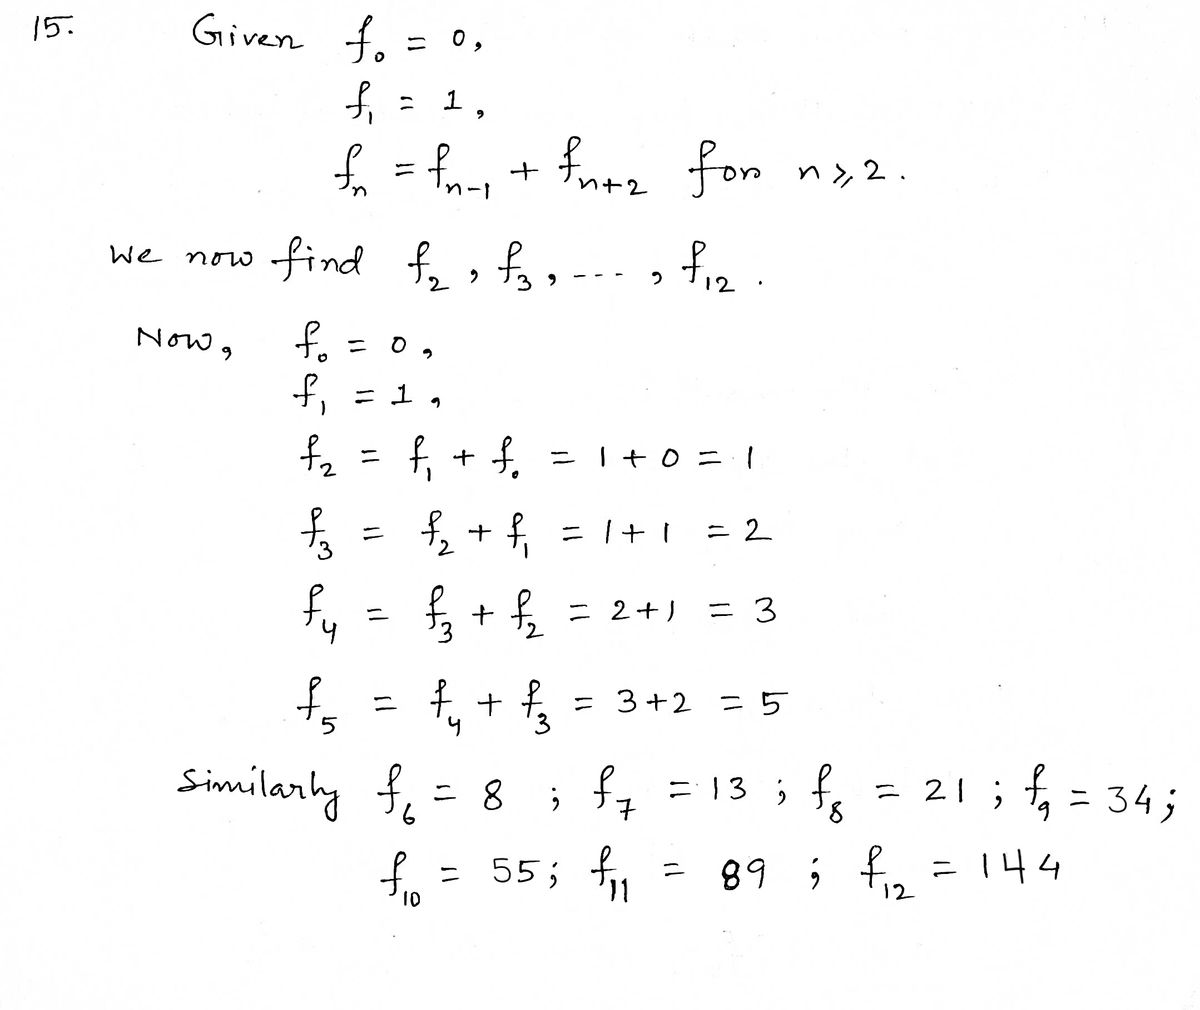 15. Given f₀ = 0,
f₁ = 1,
fₙ = fₙ₋₁ + fₙ₊₂ for n ⩾ 2.
We now find f₂, f₃, ---, f₁₂.
Now, f₀ = 0,
f₁ = 1,
f₂ = f₁ + f₀ = 1 + 0 = 1
f₃ = f₂ + f₁ = 1 + 1 = 2
f₄ = f₃ + f₂ = 2 + 1 = 3
f₅ = f₄ + f₃ = 3 + 2 = 5
Similarly f₆ = 8 ; f₇ = 13 ; f₈ = 21 ; f₉ = 34;
f₁₀ = 55; f₁₁ = 89 ; f₁₂ = 144